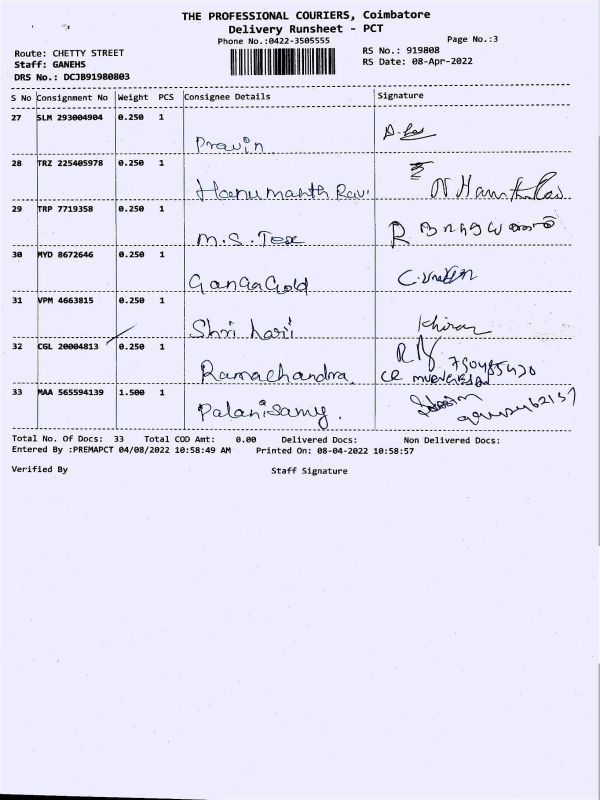 THE PROFESSIONAL COURIERS, Coimbatore
Delivery Runsheet - PCT
Phone No.:0422-3505555
Page No.:3
Route: CHETTY STREET
RS No.: 919808
Staff: GANEHS
RS Date: 08-Apr-2022
DRS No.: DCJB91980803
S No Consignment No Weight PCS Consignee Details Signature
27 SLM 293004904 0.250 1
Pravin
28 TRZ 225405978 0.250 1
Hanumanth Rav.
29 TRP 7719358 0.250 1
M.S. Tex
30 MYD 8672646 0.250 1
Ganga Gold
31 VPM 4663815 0.250 1
Shri hari Khiran
32 CGL 20004813 0.250 1
Ramachandra.
33 MAA 565594139 1.500 1
Palanisamy.
Total No. Of Docs: 33 Total COD Amt: 0.00 Delivered Docs: Non Delivered Docs:
Entered By :PREMAPCT 04/08/2022 10:58:49 AM Printed On: 08-04-2022 10:58:57
Verified By Staff Signature